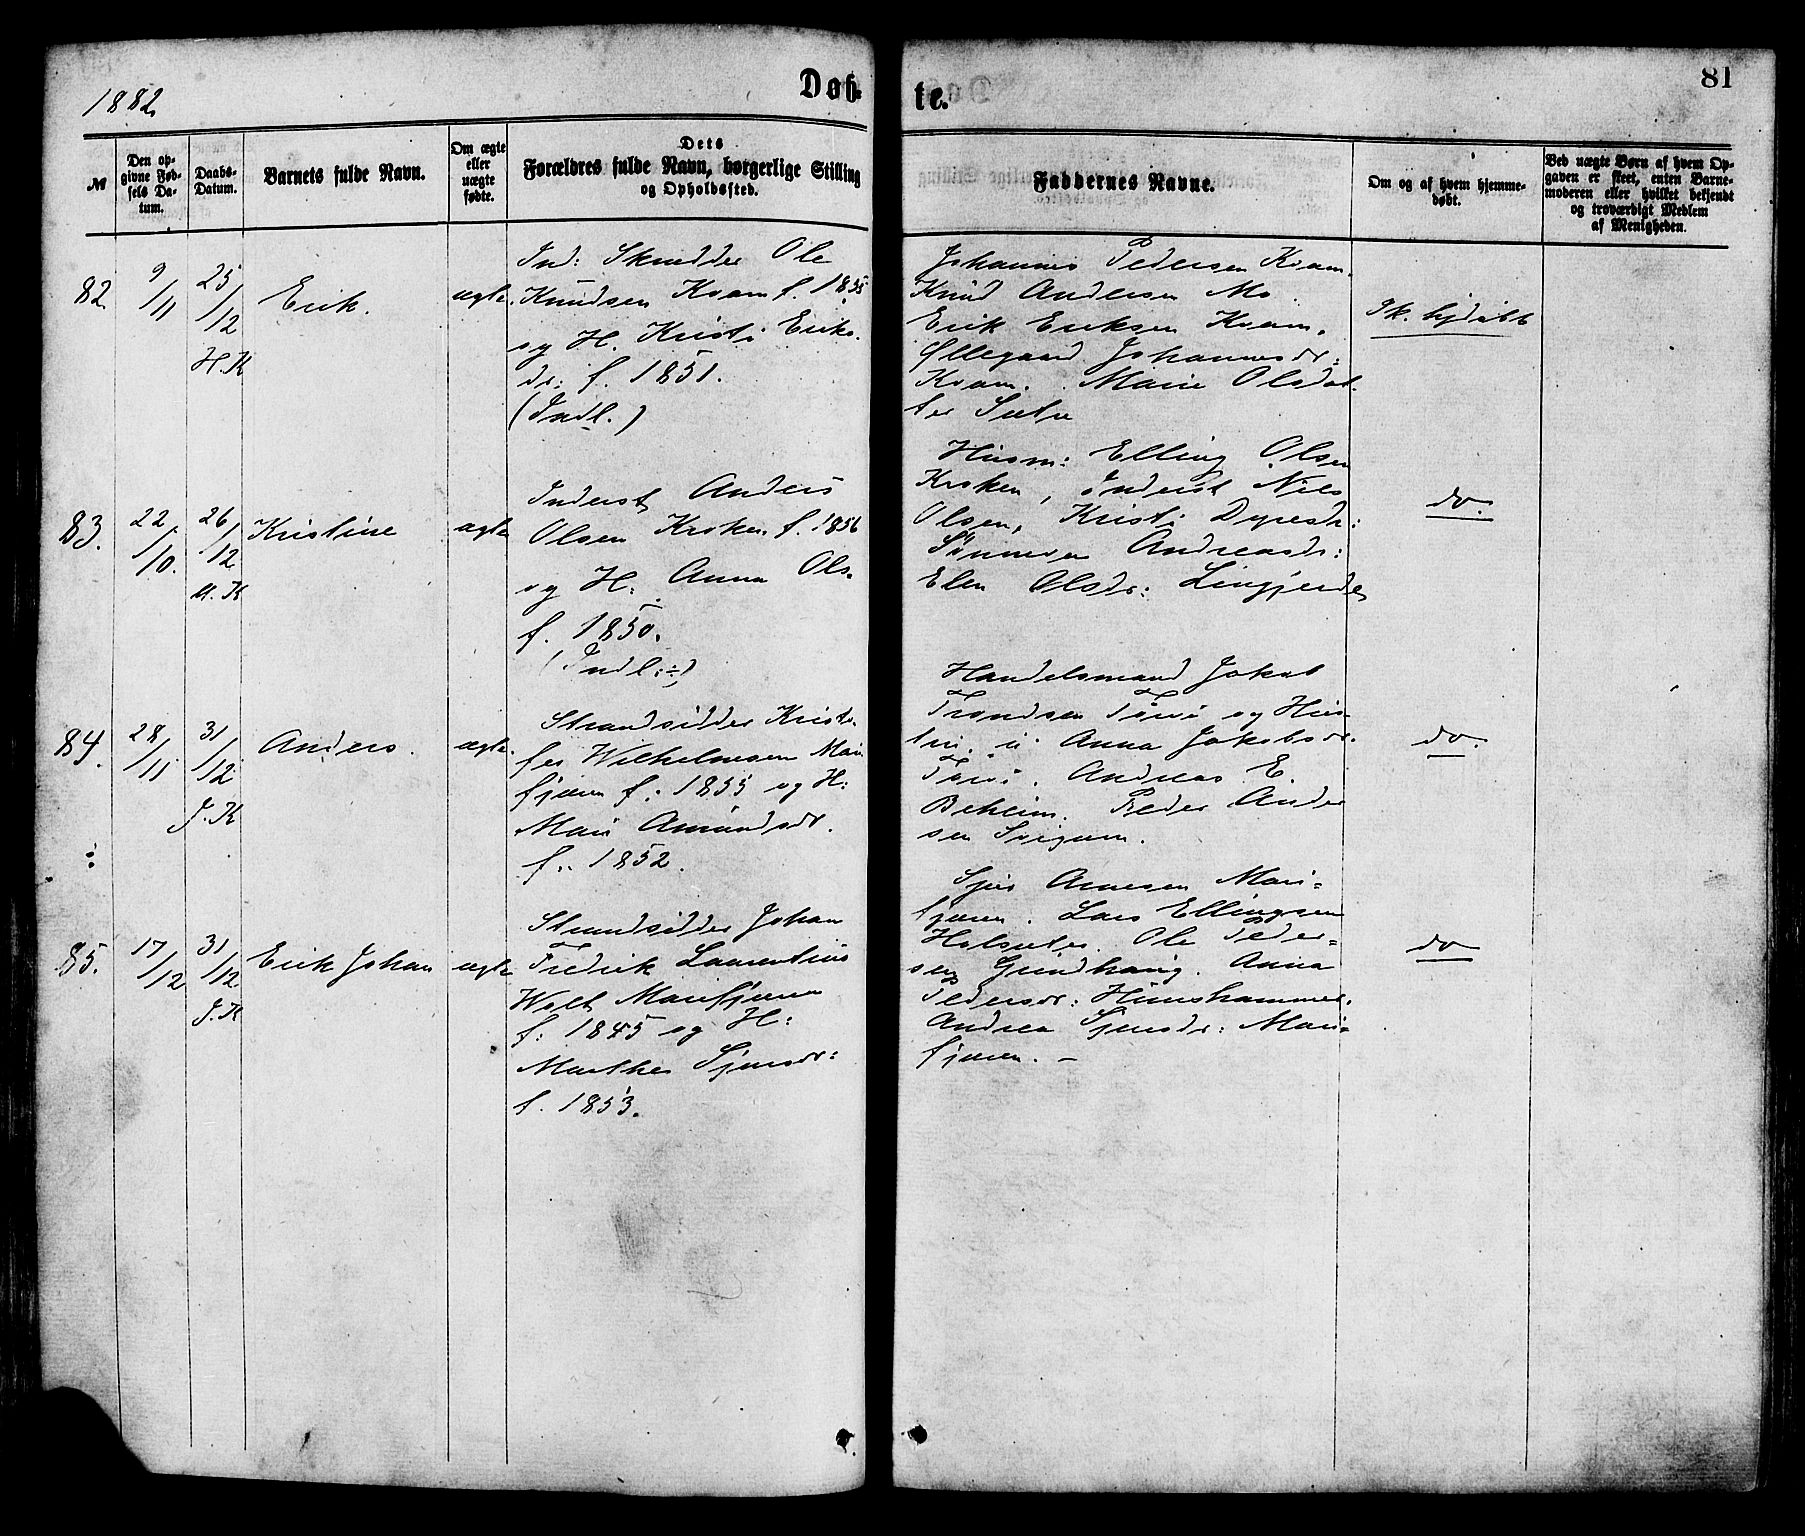 1882.
Døb-
te.
81
№
Den op-
givne Fød-
sels Da-
tum.
Daabs-
Datum.
Barnets fulde Navn.
Om ægte
eller
uægte
fødte.
Dets
Forældres fulde Navn, borgerlige Stilling
og Opholdssted.
Faddernes Navne.
Om og af hvem hjemme-
døbt.
Ved uægte Børn af hvem Op-
gaven er skeet, enten Barne-
moderen eller hvilket bekjendt
og troværdigt Medlem
af Menigheden.
82
9/11
25/12
H. K
Erik.
ægte.
Ind: Skrædder Ole
Knudsen Kvam f. 1835
og H. Kristi Eriks.
dr: f. 1851.
(Indl.)
Johannes Pedersen Kvam.
Knud Andersen Mo.
Erik Eriksen Kvam.
Øllegaard Johannesdr:
Kvam. Marie Olsdat
ter Sætre
Pk. hjdøbt
83.
22/10.
26/12
K
Kristine
ægte
Inderst Anders
Olsen Kroken f. 1856
og H: Anna Ols.
f. 1850.
(Indl:÷)
Husm: Elling Olsen
Kroken, Inderst Nils
Olsen, Kristi Dyresdr:
Sønneva Andreasdr:
Elen Olsdr: Lingjerde
do.
84.
28/11
31/12
J. K
Anders.
ægte.
Strandsidder Kristo-
fer Wilhelmsen Mari
fjæren f: 1855 og H:
Mari Amundsdr.
f.. 1852.
Handelsmand Jakob
Trondsen Tørvi og Hus-
tru. Anna Jakobsdr.
Tørvi. Andreas E.
Beheim. Peder Ander
sen
do.
85.
17/12
31/12
J. K
Erik Johan
ægte
Strandsidder Johan
Fredrik Laurentius
Marifjæren
f: 1845 og H:
Marthe Sjursdr:
f. 1853.
Sjur Arnesen Mari-
fjæren. Lars Ellingsen
Ole Peder-
sen Anna
Pedersdr:
Andrea Sjursdr: Mari-
fjæren. –
do